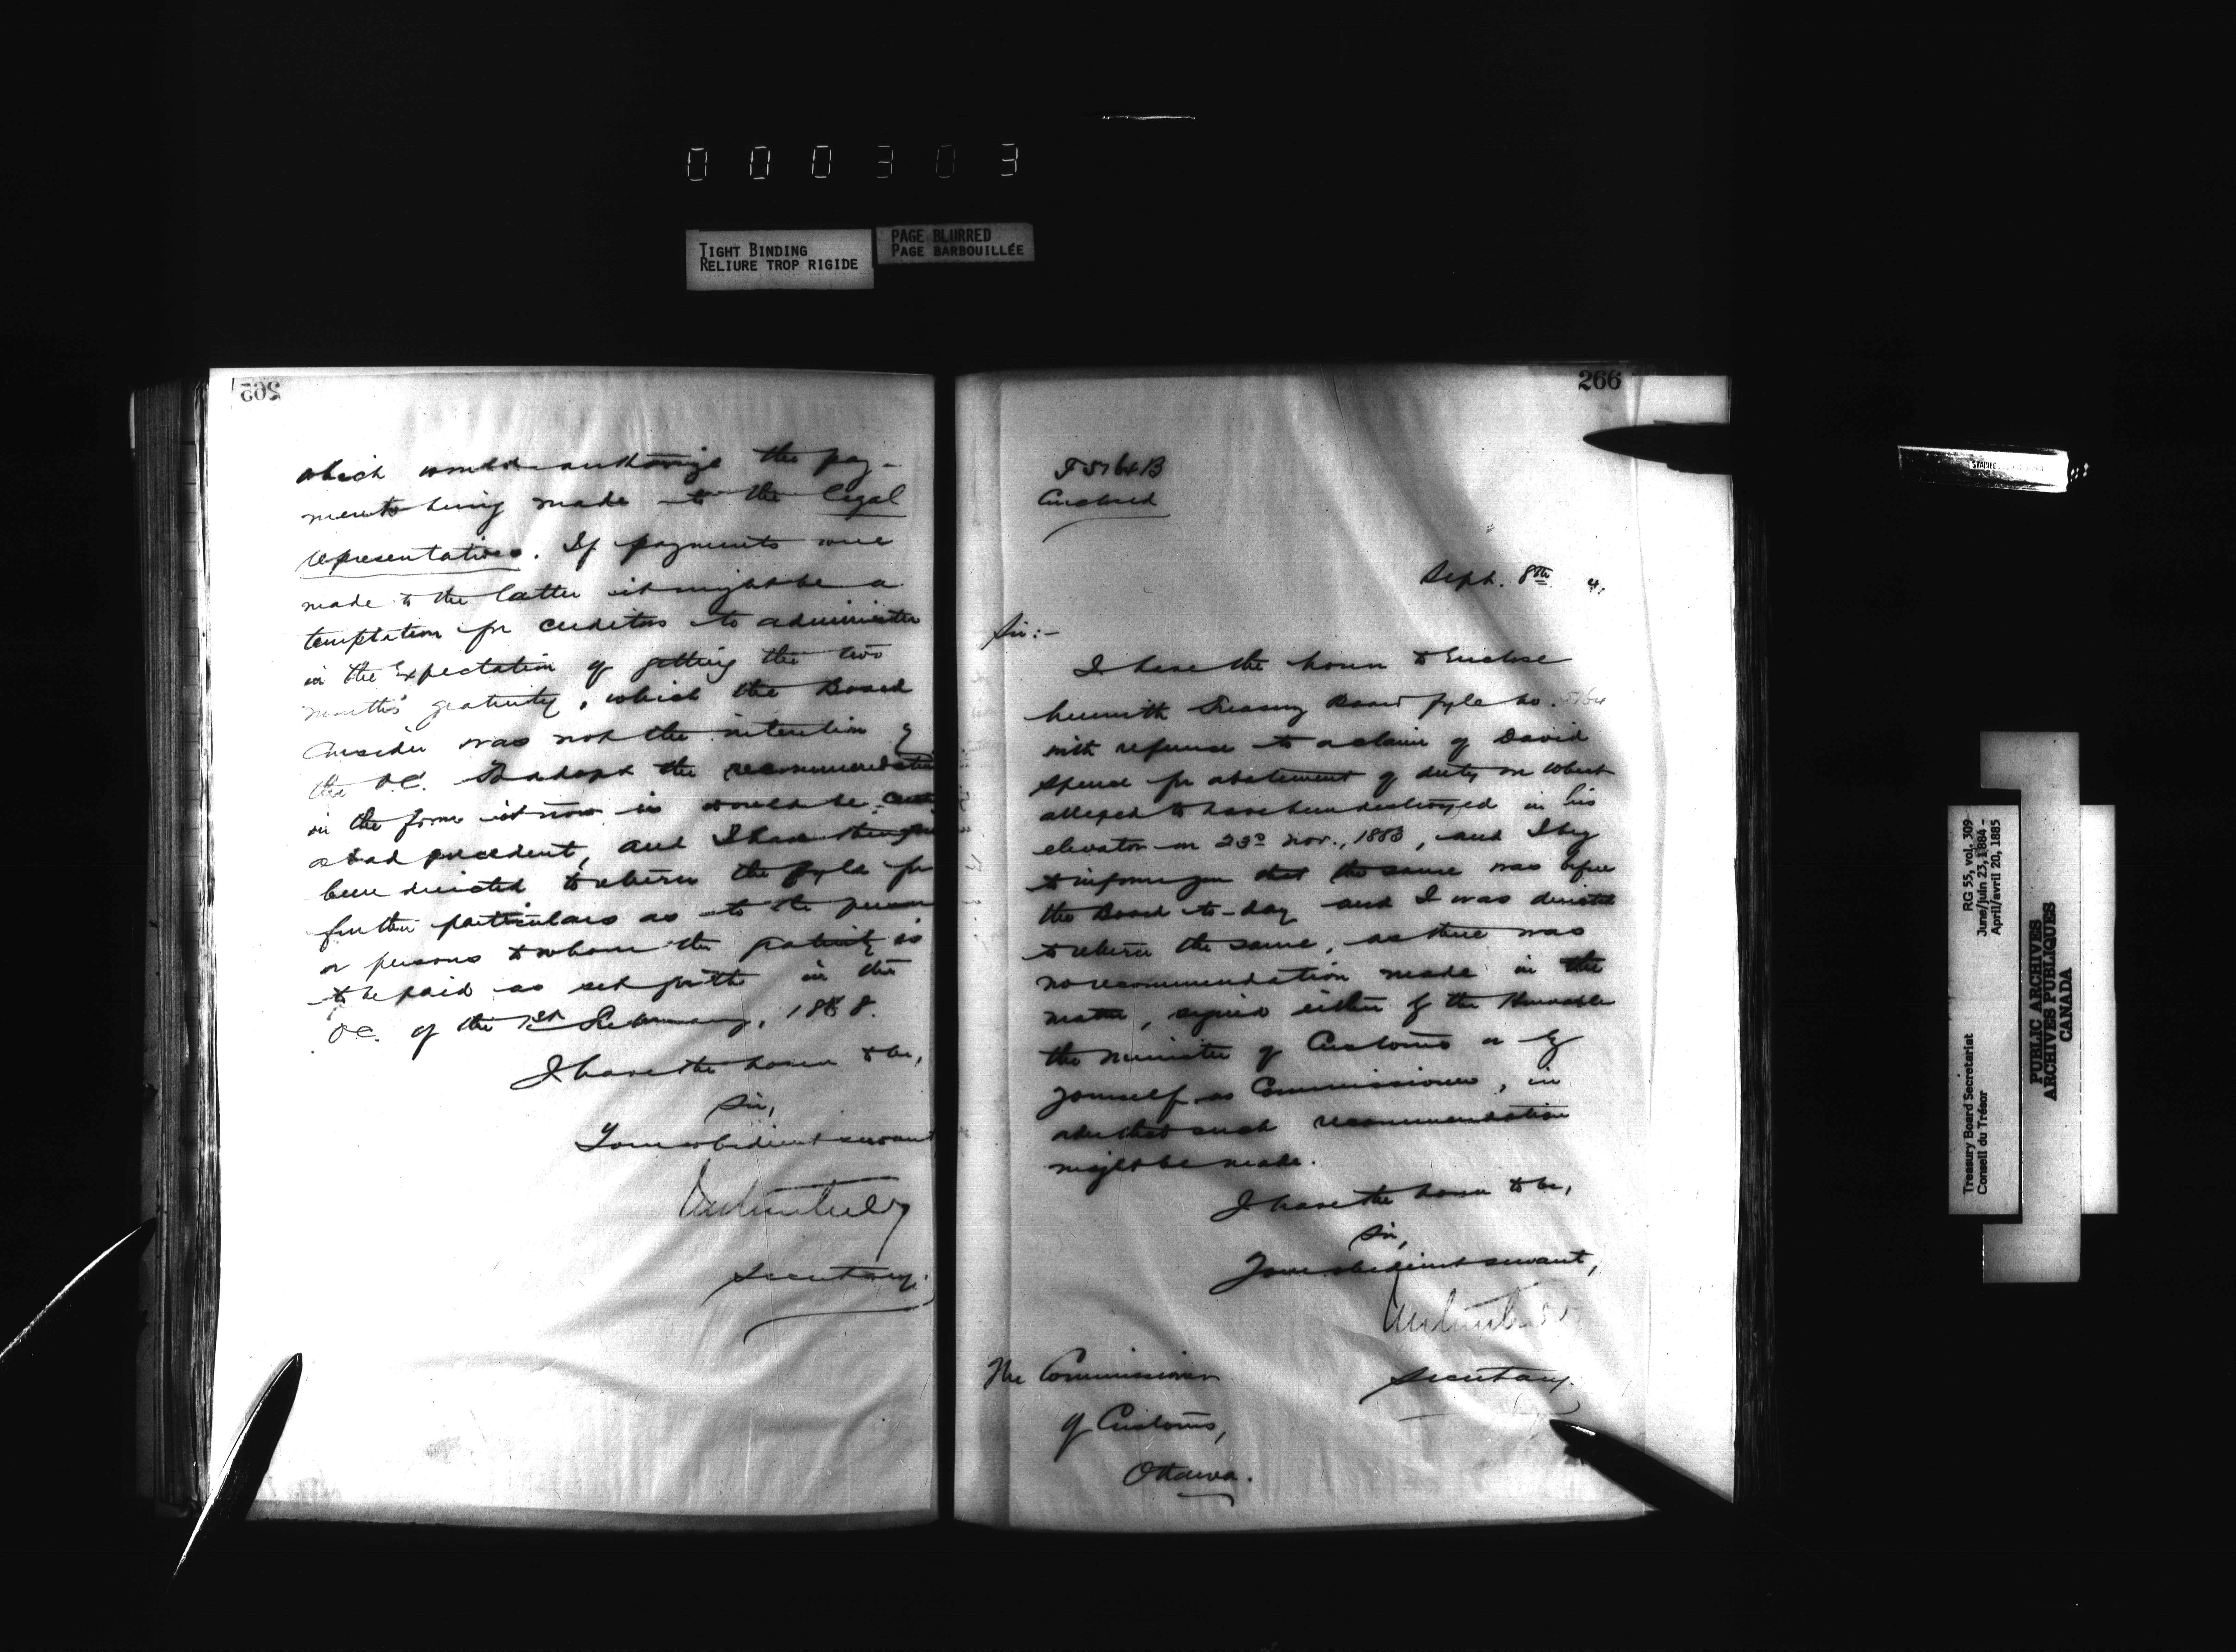 000303
TIGHT BINDING
RELIURE TROP RIGIDE
PAGE BLURRED
PAGE BARBOUILLÉE
265
which would authorize the pay-
ments being made to the legal
representatives. If payments were
made to the latter it might be a
temptation for creditors to administer
in the expectation of getting the two
months' gratuity, which the Board
consider was not the intention of
the O.C. To adopt the recommendation
in the form it now is would be
a bad precedent, and I have therefore
been directed to return the fyle for
further particulars as to the person
or persons to whom the gratuity is
to be paid as set forth in the
O.C. of the 1st February, 1888.
I have the honor to be,
Sir,
Your obedient servant
Secretary.
266
T5164B
Enclosed
Sept. 8th 4.
Sir:-
I have the honor to enclose
herewith Treasury Board fyle no. 5164
with reference to a claim of David
Spence for abatement of duty on wheat
alleged to have been destroyed in his
elevator on 23d Nov., 1883, and I beg
to inform you that the same was before
the Board to-day and I was directed
to return the same, as there was
no recommendation made in the
matter, signed either of the Honorable
the Minister of Customs or by
yourself as Commissioner, in
order that such recommendation
might be made.
I have the honor to be,
Sir,
Your obedient servant,
Secretary.
The Commissioner
of Customs,
Ottawa.
Treasury Board Secretariat
Conseil du Trésor
RG 55, vol. 309
June/juin 23, 1884 -
April/avril 20, 1885
PUBLIC ARCHIVES
ARCHIVES PUBLIQUES
CANADA